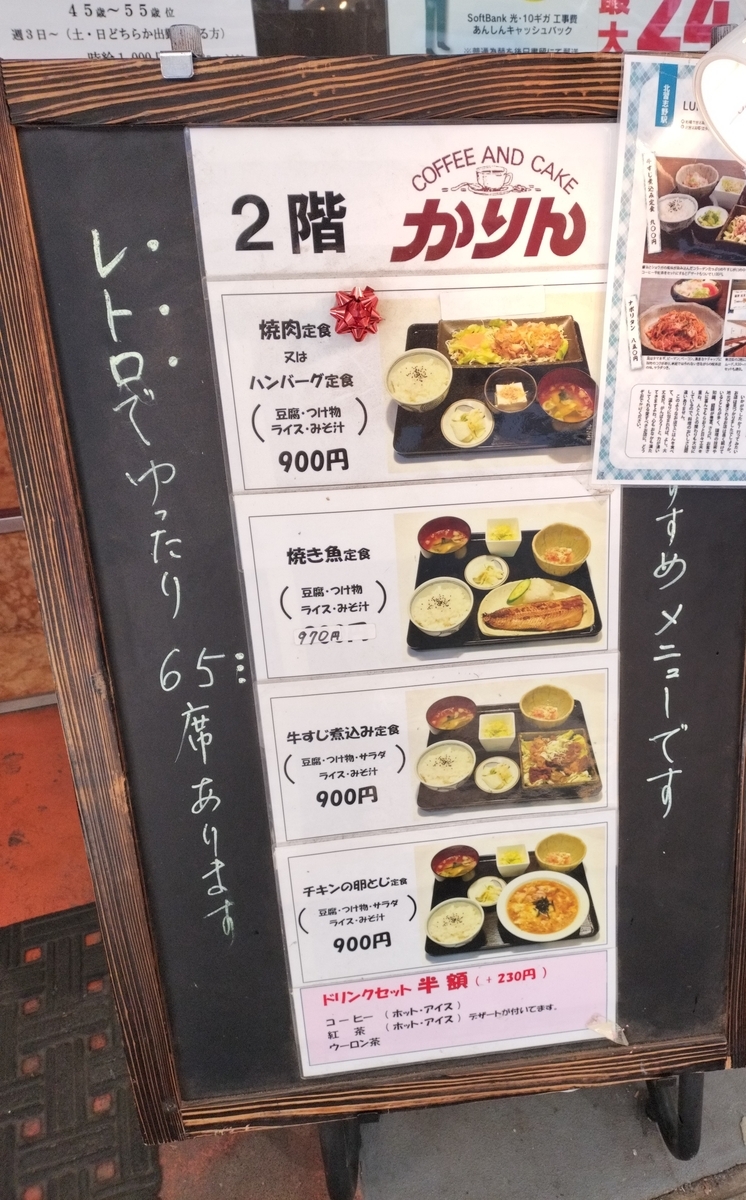 45歳～55歳位
週3日～（土・日どちらか出
る方）
SoftBank 光・10ギガ 工事費
あんしんキャッシュバック
最大
24
2階
COFFEE AND CAKE
かりん
焼肉定食
又は
ハンバーグ定食
（豆腐・つけ物
ライス・みそ汁）
900円
焼き魚定食
（豆腐・つけ物
ライス・みそ汁）
970円
牛すじ煮込み定食
（豆腐・つけ物・サラダ
ライス・みそ汁）
900円
チキンの卵とじ定食
（豆腐・つけ物・サラダ
ライス・みそ汁）
900円
ドリンクセット 半額（+230円）
コーヒー（ホット・アイス）
紅茶（ホット・アイス）デザートが付いてます。
ウーロン茶
レトロでゆったり
65席あります
すめメニューです
北習志野駅
牛すじ煮込み定食 九〇〇円
ナポリタン 八五〇円